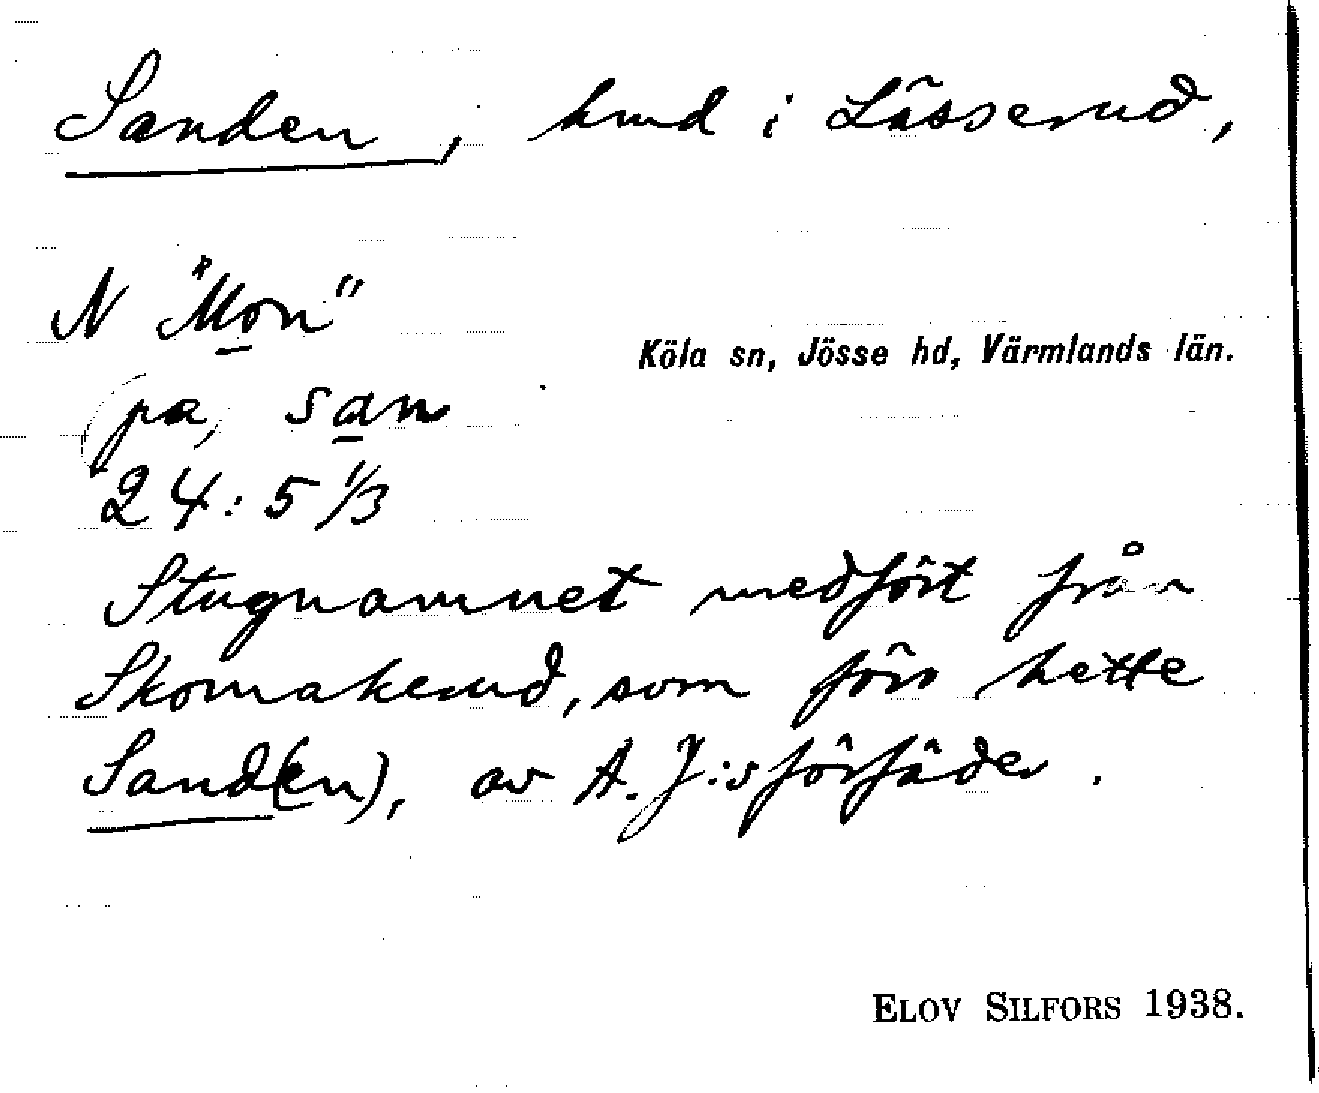 Sanden, hmd i Lässerud,
N "Mon"
Köla sn, Jösse hd, Värmlands län.
(pa, san
24:5 1/3
Stugnamnet medfört från
Skomakerud, som förr hette
Sand(en), av A. J:s förfäder.
ELOV SILFORS 1938.